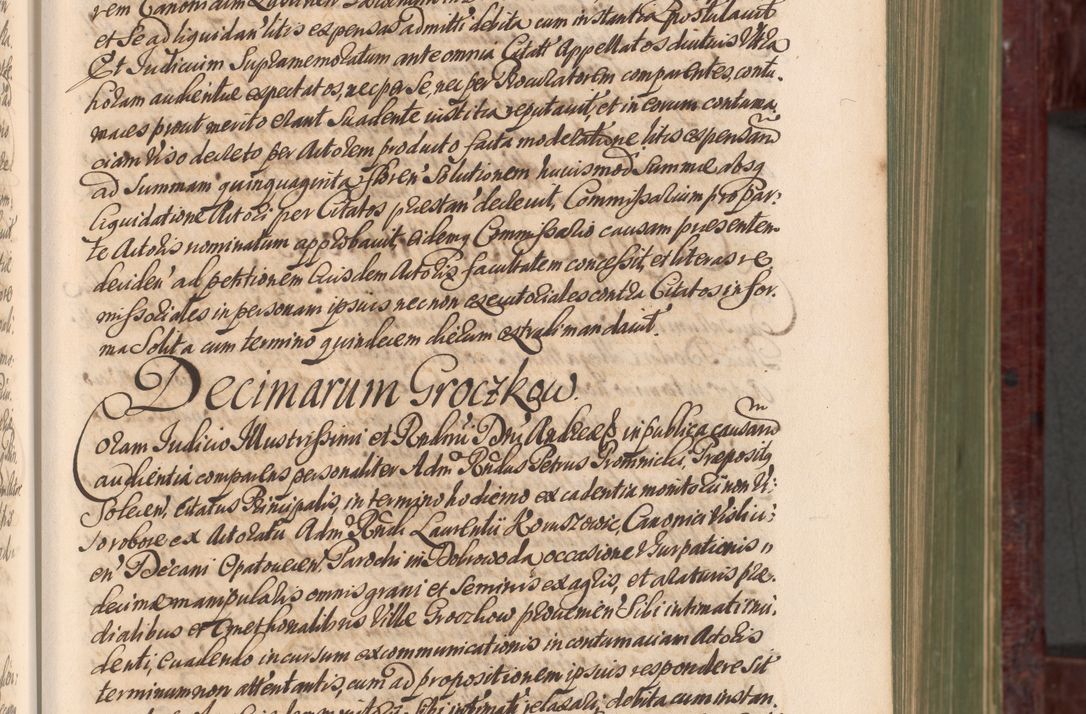 et se ad liquidan' litis expensas admitti debita cum instantia postulavit
Et Judicium Supramemoratum ante omnia Citatt' Appellatos diutius Ultra
horam audientiae expectatos, nec per se, nec per Procuratorem comparentes contu-
maces prout merito erant Suadente iustitia reputavit, et in eorum contuma
ciam viso decreto per Actorem producto facta moderatione litis expensarum
ad Summam quinquaginta floren' Solutionem huiusmodi Summae absq
liquidatione Actori per Citatos praestan' decrevit, Commissarium pro par-
te Actoris nominatum approbavit, eidemq Commissario causam praesentem
deciden' ad petitionem Eiusdem Actoris facultatem concessit, et literas re
missoriales in personam ipsius nec non executoriales contra Citatos in for-
ma Solita cum termino quindecem dierum extrahi mandavit
Decimarum Groczkow.
Coram Judicio Illustrissimi et Rndmi Dni Andreae in publica causarum
audientia comparens personaliter Admo Rndus Petrus Promnicki, Praepositq
Solecen', Citatus Principalis, in termino hodierno ex cadentia monitorii non Vi-
so robore ex Actoratu Admo Rndi Laurentii Koruszowic, Canonici Vislici-
en' Decani Opatovicen' Parochi in Dobrowoda occasione Usurpationis
decimae manipularis omnis grani et Seminis ex agris, et araturis prae-
dialibus et Cmethonalibus Villae Groczkow provenien' Sibi intimati inci-
denti, evadendo incursum excommunicationis in contumaciam Actoris
terminum non attentantis, cum ad propositionem ipsius respondere sit
sibi intimati relaxari, debita cum instan-